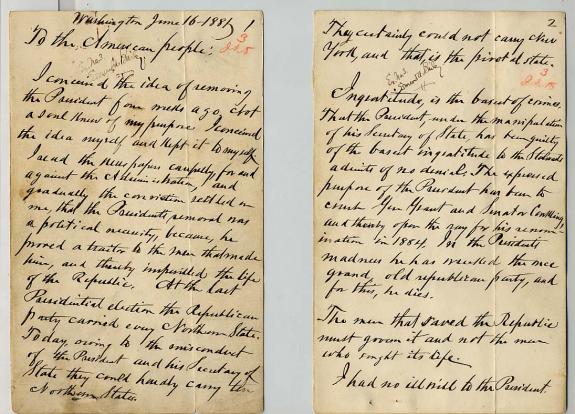 Washington June 16-1881 1
To the American people:
3
I conceived the idea of removing
the President four weeks ago. Not
a soul knew of my purpose. I conceived
the idea myself and kept it to myself.
I read the newspapers carefully, for and
against the Administration, and
gradually, the conviction settled on
me, that the President's removal was
a political necessity, because, he
proved a traitor to the men that made
him, and thereby imperilled the life
of the Republic. At the last
Presidential election the Republican
party carried every Northern State.
Today, owing to the misconduct
of the President and his Secretary of
State they could hardly carry ten
Northern States.
2
They certainly could not carry New
York, and that is the pivotal state.
3
Ingratitude, is the basest of crimes.
That the President, under the manipulation
of his Secretary of State, has been guilty
of the basest ingratitude to the Stalwarts
admits of no denial. The expressed
purpose of the President has been to
crush Gen Grant and Senator Conkling,
and thereby open the way for his renom-
ination in 1884. In the President's
madness he has wrecked the once
grand, old republican party, and
for this, he dies.
The men that saved the Republic
must govern it and not the men
who sought its life.
I had no ill will to the President.